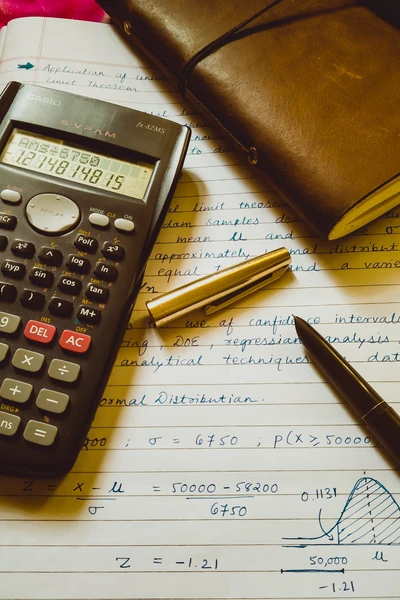 → Application of
Limit Theorem
CASIO
S-V.P.A.M.
fx-82MS
Ans÷6750
1.214814815
REPLAY
MODE CLR ON
Pol( x³
x² ^ log ln
hyp sin cos tan
( ) , M+
9 DEL AC
× ÷
+ −
DRG▸
Ans =
limit theorem
random samples
mean μ and
approximately normal distribut
equal to and a varia
/n
use of confidence intervals
ing DOE, regression analysis,
analytical techniques dat
ormal Distribution.
200 ; σ = 6750 ; P(X ≥ 50000
Z = X − μ / σ = 50000 − 58200 / 6750
0.1131
Z = −1.21
50,000 μ
−1.21